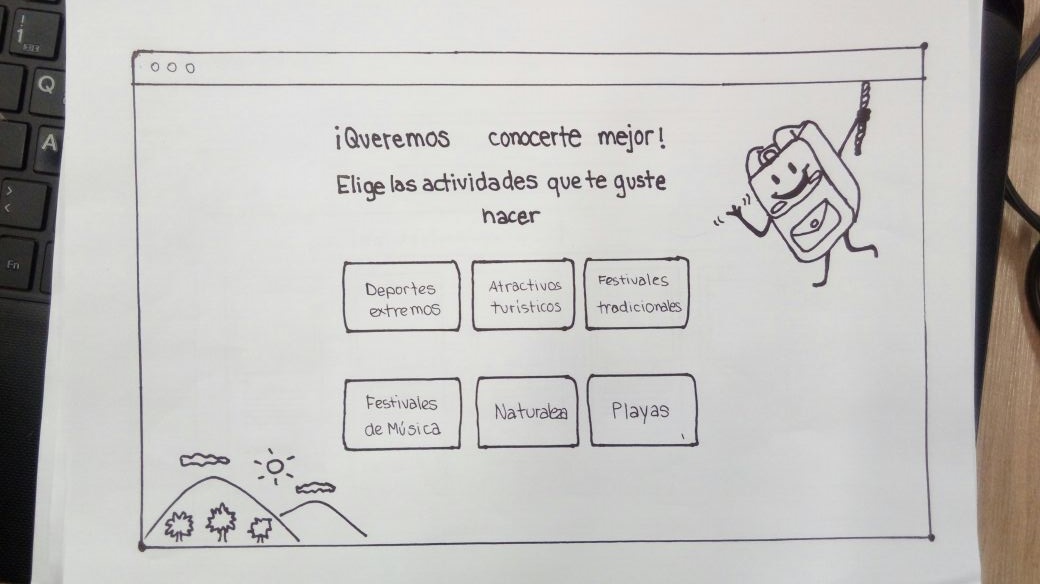 ¡Queremos conocerte mejor!
Elige las actividades que te guste
hacer
Deportes
extremos
Atractivos
turísticos
Festivales
tradicionales
Festivales
de Música
Naturaleza
Playas
!
1
Q
A
>
<
Fn